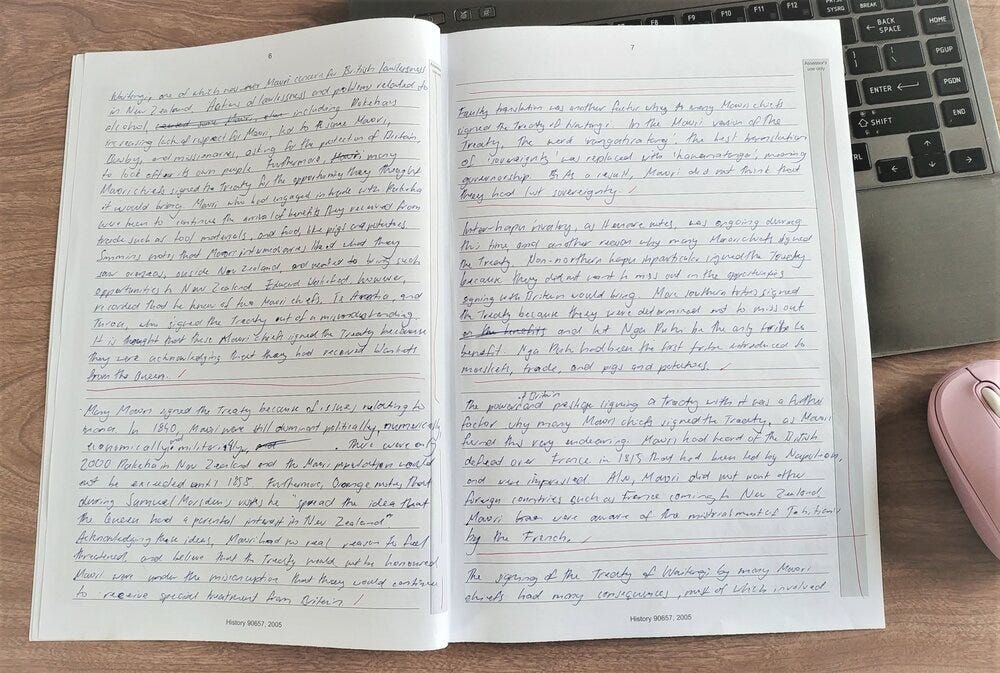 6
Waitangi, one of which was over Maori concern for British lawlessness
in New Zealand. Actions of lawlessness and problems related to
alcohol, including Pakeha's
increasing lack of respect for Maori, led to some Maori,
Busby, and missionaries, asking for the protection of Britain,
to look after its own people. Furthermore, many
Maori chiefs signed the Treaty for the opportunities they thought
it would bring. Maori who had engaged in trade with Pakeha
were keen to continue the arrival of benefits they received from
trade such as tool materials, and food, like pigs and potatoes.
Simmins notes that Maori intermediaries liked what they
saw overseas, outside New Zealand, and wanted to bring such
opportunities to New Zealand. Edward Wakefield, however,
recorded that he knew of two Maori chiefs, Te and
who signed the Treaty out of a misunderstanding.
It is thought that these Maori chiefs signed the Treaty because
they were acknowledging that they had received blankets
from the Queen. /
Many Maori signed the Treaty because of issues relating to
mana. In 1840, Maori were still dominant politically, numerically,
economically and militarily, There were only
2000 Pakeha in New Zealand and the Maori population would
not be exceeded until 1858. Furthermore, Orange notes that
during Samuel Marsden's work he "spread the idea that
the Queen had a parental interest in New Zealand"
Acknowledging these ideas, Maori had no real reason to feel
threatened, and believe that the Treaty would not be honoured.
Maori were under the misconception that they would continue
to receive special treatment from Britain /
History 90657, 2005
7
Assessor's
use only
Faulty translation was another factor why so many Maori chiefs
signed the Treaty of Waitangi. In the Maori version of the
Treaty, the word 'rangatiratanga', the best translation
of 'sovereignty' was replaced with 'kawanatanga', meaning
governorship. As a result, Maori did not think that
they had lost sovereignty. /
Inter-hapu rivalry, as Henare notes, was ongoing during
this time, and another reason why many Maori chiefs signed
the Treaty. Non-northern hapu in particular signed the Treaty
because they did not want to miss out on the opportunities
signing with Britain would bring. More southern tribes signed
the Treaty because they were determined not to miss out
on the benefits and let Nga Puhi be the only tribe to
benefit. Nga Puhi had been the first tribe introduced to
muskets, trade, and pigs and potatoes. /
The power and prestige of Britain signing a treaty with it was a further
factor why many Maori chiefs signed the Treaty, as Maori
found this very endearing. Maori had heard of the British
defeat over France in 1815 that had been led by Napoleon,
and were impressed. Also, Maori did not want other
foreign countries such as France coming to New Zealand.
Maori were aware of the mistreatment of Tahitians
by the French. /
The signing of the Treaty of Waitangi by many Maori
chiefs had many consequences, most of which involved
History 90657, 2005
F8
F9
F10
F11
F12
SYSRQ
BREAK
BACK
SPACE
HOME
PGUP
ENTER
PGDN
SHIFT
END